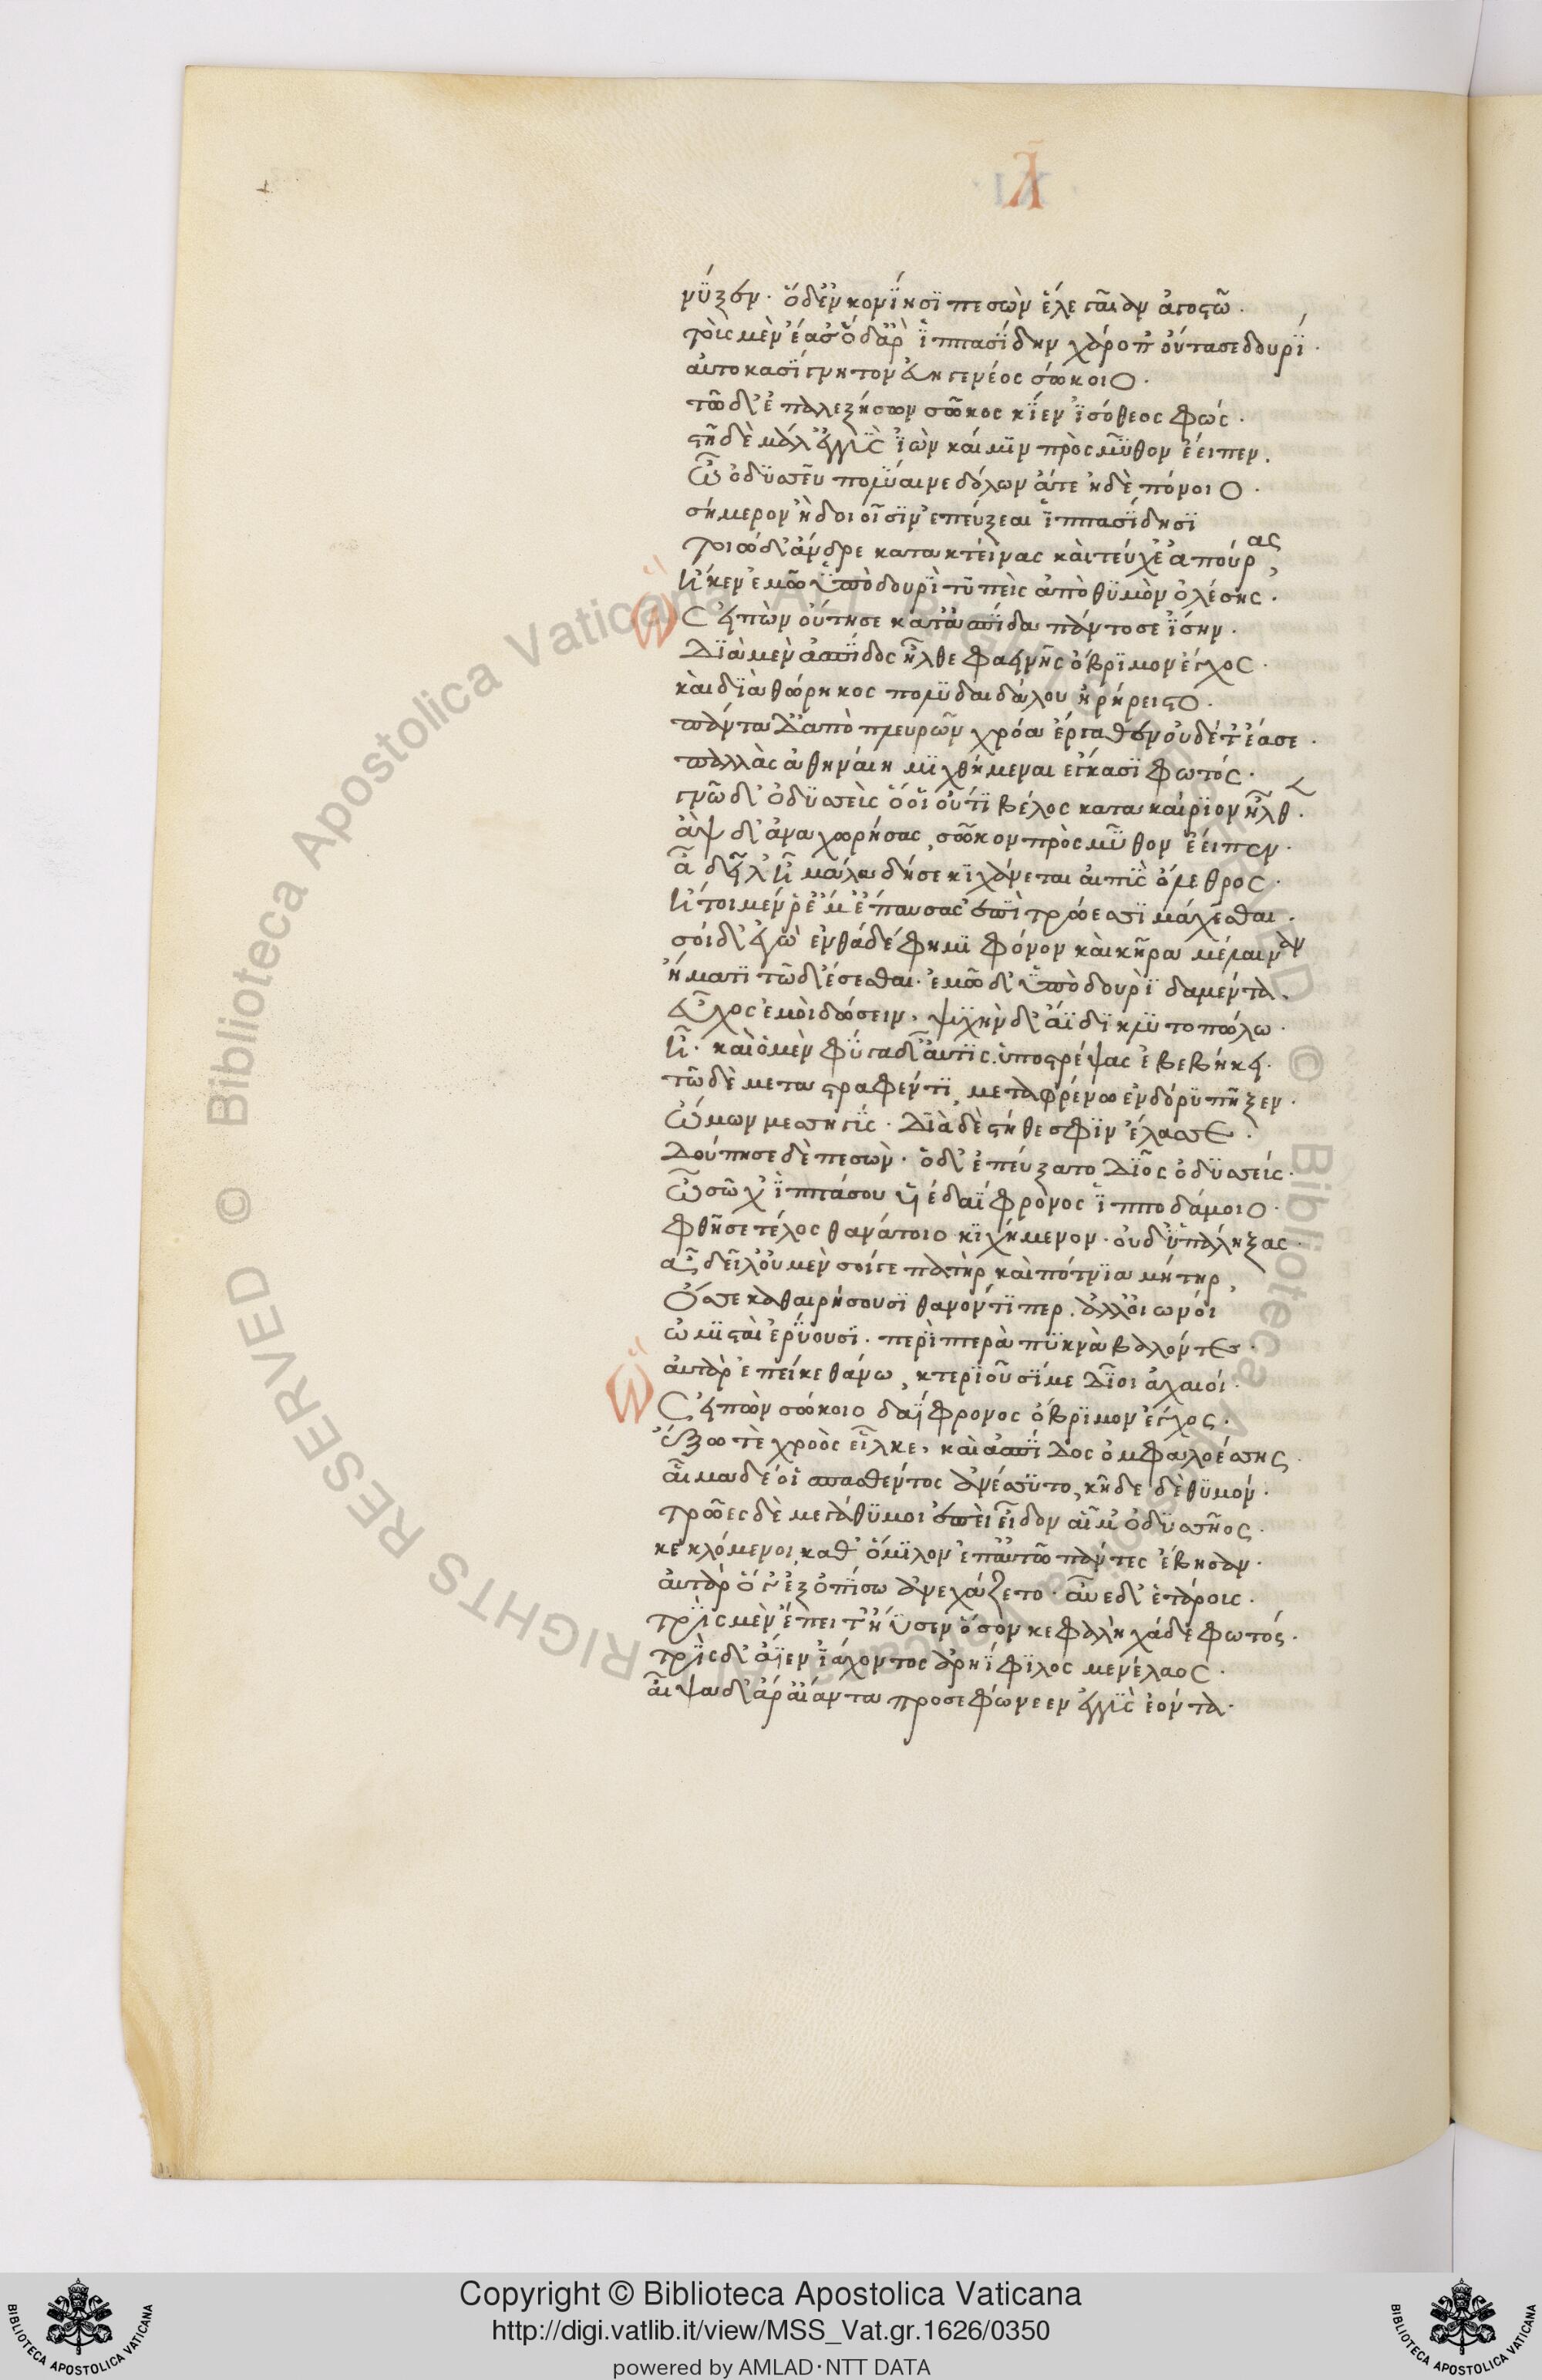 λ̃
νύξεν· ὁ δ' ἐν κονίησι πεσὼν ἕλε γαῖαν ἀγοστῶ·
τοὺς μὲν ἔασ' ὁ δ' ἄρ' ἱππασίδην χάροπ' οὔτασε δουρί·
αὐτοκασίγνητον εὐηγενέος σώκοιο·
τῶ δ' ἐπαλεξήσων σῶκος κίεν ἰσόθεος φώς·
στῆ δὲ μάλ' ἐγγὺς ἰὼν καί μιν πρὸς μῦθον ἔειπεν·
ὦ ὀδυσεῦ πολύαινε δόλων ἆτ' ἠδὲ πόνοιο·
σήμερον ἢ δοιοῖσιν ἐπεύξεαι ἱππασίδησι
τοιώδ' ἄνδρε κατακτείνας καὶ τεύχε' ἀπούρας,
ἤ κεν ἐμῶ ὑπὸ δουρὶ τυπεὶς ἀπὸ θυμὸν ὀλέσης·
ὣς εἰπὼν οὔτησε κατ' ἀσπίδα πάντοσε ἴσην·
διὰ μὲν ἀσπίδος ἦλθε φαεινῆς ὄβριμον ἔγχος·
καὶ διὰ θώρηκος πολυδαιδάλου ἠρήρειστο·
πάντα δ' ἀπὸ πλευρῶν χρόα ἔργαθεν οὐδέ τ' ἔασε·
παλλὰς ἀθηναίη μιχθήμεναι ἔγκασι φωτός·
γνῶ δ' ὀδυσεὺς ὅ οἱ οὔτι βέλος κατακαίριον ἦλθεν·
ἂψ δ' ἀναχωρήσας, σῶκον πρὸς μῦθον ἔειπεν·
ἆ δείλ' ἦ μάλα δή σε κιχάνεται αἰπὺς ὄλεθρος·
ἤτοι μέν ῥ' ἔμ' ἔπαυσας ἐπὶ τρώεσσι μάχεσθαι·
σοὶ δ' ἐγὼ ἐνθάδε φημὶ φόνον καὶ κῆρα μέλαιναν
ἤματι τῶδ' ἔσεσθαι· ἐμῶ δ' ὑπὸ δουρὶ δαμέντα·
εὖχος ἐμοὶ δώσειν, ψυχὴν δ' ἄϊδι κλυτοπώλω·
ἦ· καὶ ὁ μὲν φύγαδ' αὖτις ὑποστρέψας ἐβεβήκει·
τῶ δὲ μεταστραφέντι, μεταφρένω ἐν δόρυ πῆξεν·
ὤμων μεσσηγύς· διὰ δὲ στήθεσφιν ἔλασσε·
δούπησε δὲ πεσών· ὁ δ' ἐπεύξατο δῖος ὀδυσσεύς·
ὦ σῶχ' ἱππάσου υἱὲ δαΐφρονος ἱπποδάμοιο·
φθῆ σε τέλος θανάτοιο κιχήμενον· οὐδ' ὑπάληξας·
ἆ δείλ' οὐ μὲν σοί γε πατὴρ καὶ πότνια μήτηρ,
ὄσσε καθαιρήσουσι θανόντι περ· ἀλλ' οἰωνοὶ
ὠμισταὶ ἐρύουσι· περὶ πτερὰ πυκνὰ βαλόντες·
αὐτὰρ ἐπεί κε θάνω, κτεριοῦσί με δῖοι ἀχαιοί·
ὣς εἰπὼν σώκοιο δαΐφρονος ὄβριμον ἔγχος·
ἔξω τε χροὸς εἷλκε, καὶ ἀσπίδος ὀμφαλοέσσης
αἷμα δέ οἱ σπασθέντος ἀνέσσυτο, κῆδε δὲ θυμόν·
τρῶες δὲ μεγάθυμοι ἐπεὶ εἶδον αἷμ' ὀδυσσῆος·
κεκλόμενοι καθ' ὅμιλον ἐπ' αὐτῶ πάντες ἔβησαν·
αὐτὰρ ὅ γ' ἐξοπίσω ἀνεχάζετο· αὖε δ' ἑταίρους·
τρὶς μὲν ἔπειτ' ἤϋσεν ὅσον κεφαλὴ χάδε φωτός·
τρὶς δ' ἄϊεν ἰάχοντος ἀρηΐφιλος μενέλαος·
αἶψα δ' ἄρ' αἴαντα προσεφώνεεν ἐγγὺς ἐόντα·
Copyright © Biblioteca Apostolica Vaticana
http://digi.vatlib.it/view/MSS_Vat.gr.1626/0350
powered by AMLAD·NTT DATA
BIBLIOTECA APOSTOLICA VATICANA
BIBLIOTECA APOSTOLICA VATICANA